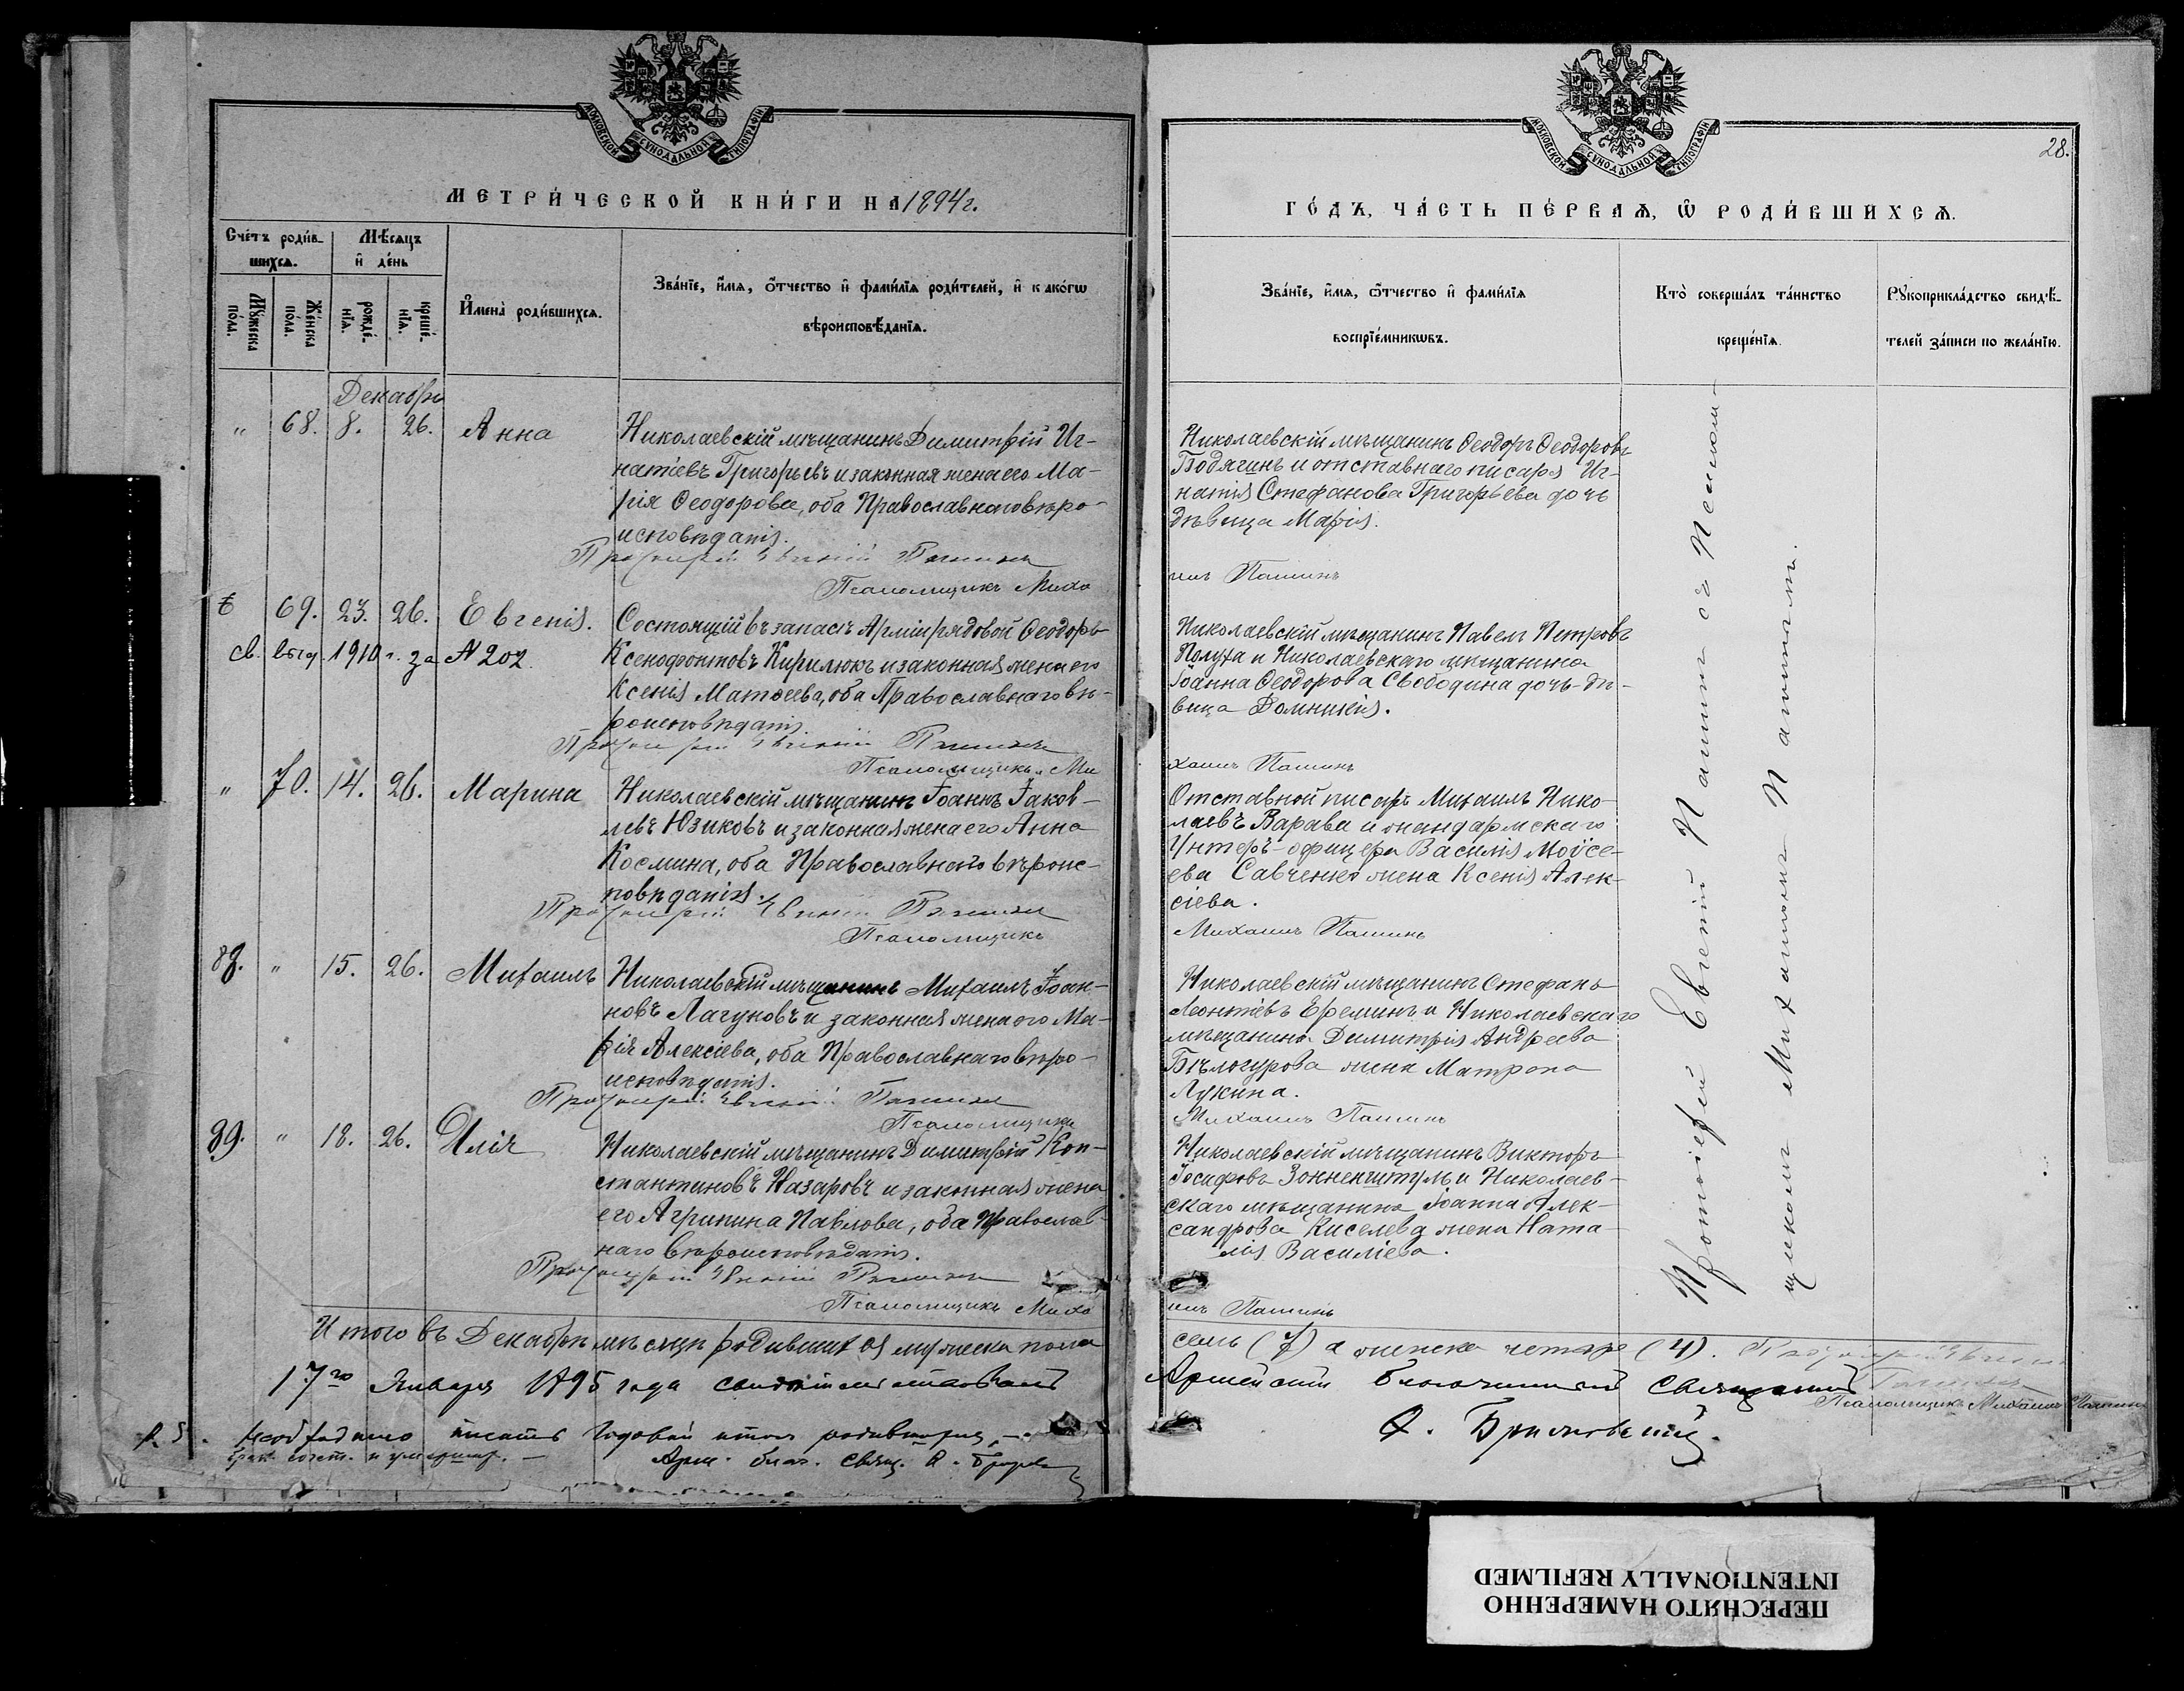 МОСКОВСКОЙ СѴНОДАЛЬНОЙ ТИПОГРАФІИ
МЕТРИ́ЧЕСКОЙ КНИ́ГИ НА 1894 г.
Сче́тъ роди́в-
шихсѧ.
Мѣ́сѧцъ
и҆ де́нь
Мꙋ́жеска по́ла.
Же́нска по́ла.
рожде́нїѧ.
креще́нїѧ.
И҆мена̀ роди́вшихсѧ.
Зва́нїе, и҆́мѧ, ѻ҆́тчество и҆ фами́лїѧ роди́телей, и҆ како́гѡ
вѣроисповѣ́данїѧ.
Декабрь
" 68. 8. 26. Анна
Николаевскій мѣщанинъ Димитрій Иг-
натіевъ Григорьевъ и законная жена его Ма-
рія Ѳеодорова, оба Православнаго вѣро-
исповѣданія.
Протоіерей Евгеній Пашинъ
Псаломщикъ Миха
69. 23. 26. Евгенія.
св. выд. 1910 г. за № 202.
Состоящій въ запасѣ Арміи рядовой Ѳеодоръ
Ксенофонтовъ Кирилюкъ и законная жена его
Ксенія Матѳеева, оба Православнаго вѣ-
роисповѣданія.
Протоіерей Евгеній Пашинъ
Псаломщикъ Ми
" 70. 14. 26. Марина
Николаевскій мѣщанинъ Іоаннъ Іаков-
левъ Юзиковъ и законная жена его Анна
Космина, оба Православнаго вѣроис-
повѣданія.
Протоіерей Евгеній Пашинъ
Псаломщикъ
88. " 15. 26. Михаилъ
Николаевскій мѣщанинъ Михаилъ Іоан-
новъ Лагуновъ и законная жена его Ма-
рія Алексіева, оба Православнаго вѣро-
исповѣданія.
Протоіерей Евгеній Пашинъ
Псаломщикъ
89. " 18. 26. Илія
Николаевскій мѣщанинъ Димитрій Кон-
стантиновъ Назаровъ и законная жена
его Агрипина Павлова, оба Православ-
наго вѣроисповѣданія.
Протоіерей Евгеній Пашинъ
Псаломщикъ Миха
Итого въ Декабрѣ мѣсяцѣ родившихся мужеска пола
17го Января 1895 года свидѣтельствовалъ
P. S. Необходимо писать годовой итогъ родившихся,
брак. сочет. и умерших. —
Арм. благ. свящ.
МОСКОВСКОЙ СѴНОДАЛЬНОЙ ТИПОГРАФІИ
28.
ГО́ДЪ, ЧА́СТЬ ПЕ́РВАѦ, Ѡ҆ РОДИ́ВШИХСѦ.
Зва́нїе, и҆́мѧ, ѻ҆́тчество и҆ фами́лїѧ
воспрїе́мникѡвъ.
Кто̀ соверша́лъ та́инство
креще́нїѧ.
Рꙋкоприкла́дство свидѣ́-
телей за́писи по жела́нїю.
Николаевскій мѣщанинъ Ѳеодоръ Ѳеодоровъ
Бодягинъ и отставнаго писаря Иг-
натія Стефанова Григорьева дочь
дѣвица Марія.
илъ Пашинъ
Николаевскій мѣщанинъ Павелъ Петровъ
Полуха и Николаевскаго мѣщанина
Іоанна Ѳеодорова Свободина дочь-дѣ-
вица Домникія.
хаилъ Пашинъ
Отставной писарь Михаилъ Нико-
лаевъ Варава и жандармскаго
Унтеръ-офицера Василія Моѵсе-
ева Савченко жена Ксенія Алек-
сіева.
Михаилъ Пашинъ
Николаевскій мѣщанинъ Стефанъ
Леонтіевъ Ереминъ и Николаевскаго
мѣщанина Димитрія Андреева
Бѣлогурова жена Матрона
Лукина.
Михаилъ Пашинъ
Николаевскій мѣщанинъ Викторъ
Іосифовъ Зонненштуль и Николаев-
скаго мѣщанина Іоанна Алек-
сандрова Киселева жена Ната-
лія Василіева.
илъ Пашинъ
Протоіерей Евгеній Пашинъ съ Псалом-
щикомъ Михаиломъ Пашинымъ.
семь (7) а женска четыре (4). Протоіерей Евгеній
Пашинъ
Армейскій благочинный священникъ
Псаломщикъ Михаилъ Пашинъ
ПЕРЕСНЯТО НАМЕРЕННО
INTENTIONALLY REFILMED